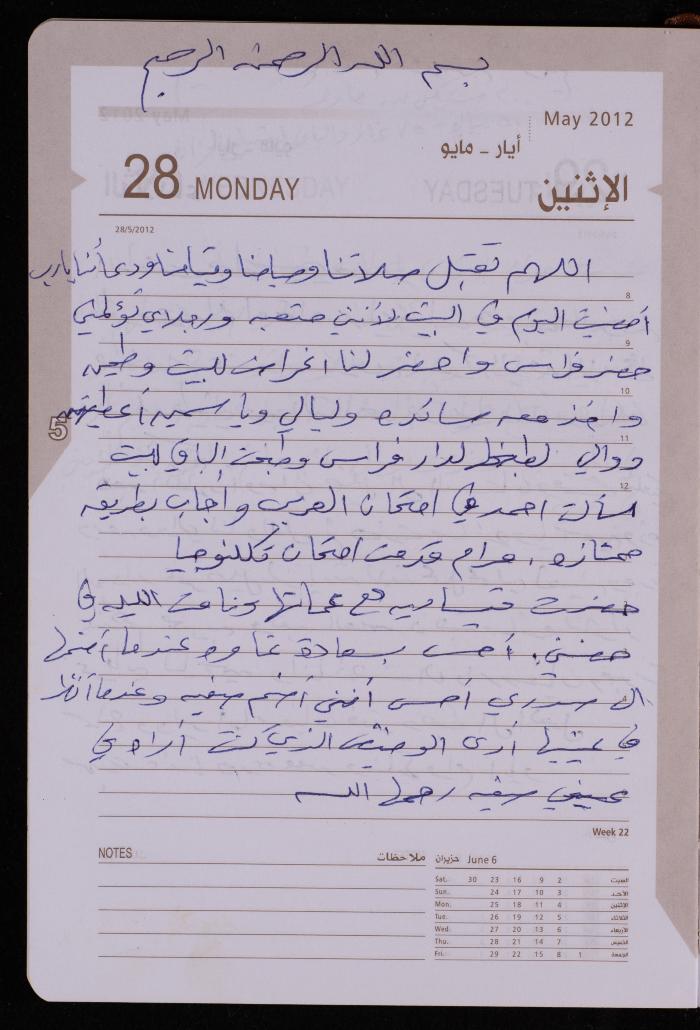 بسم الله الرحمن الرحيم
May 2012
أيار - مايو
28 MONDAY
الإثنين
28/5/2012
اللهم تقبل صلاتنا وصيامنا وقيامنا ودعائنا يا رب
8
أمضيت اليوم في البيت لأنني متعبه ورجلاي تؤلمني
9
حضر فراس واحضر لنا اغراض للبيت وطحين
10
واخذ معه سائده وليالي وياسمين أعطيتهم
5
11
دوالي لطبخها لدار فراس وطبخت الباقي للبيت
12
سألت احمد في امتحان العربي وأجاب بطريقه
ممتازه. مرام قدمت امتحان تكنلوجيا
حضرت مع عماتها ونامت الليله في
حضني. أحس بسعادة غامره عندما أضمها
الى صدري أحس أنني أضم صفيه وعندما أنظر
في عينيها أرى الوميض الذي كنت أراه في
عيني صفيه رحمها الله
Week 22
NOTES ملاحظات
June 6 حزيران
Sat. 30 23 16 9 2 السبت
Sun. 24 17 10 3 الأحد
Mon. 25 18 11 4 الإثنين
Tue. 26 19 12 5 الثلاثاء
Wed. 27 20 13 6 الأربعاء
Thu. 28 21 14 7 الخميس
Fri. 29 22 15 8 1 الجمعة